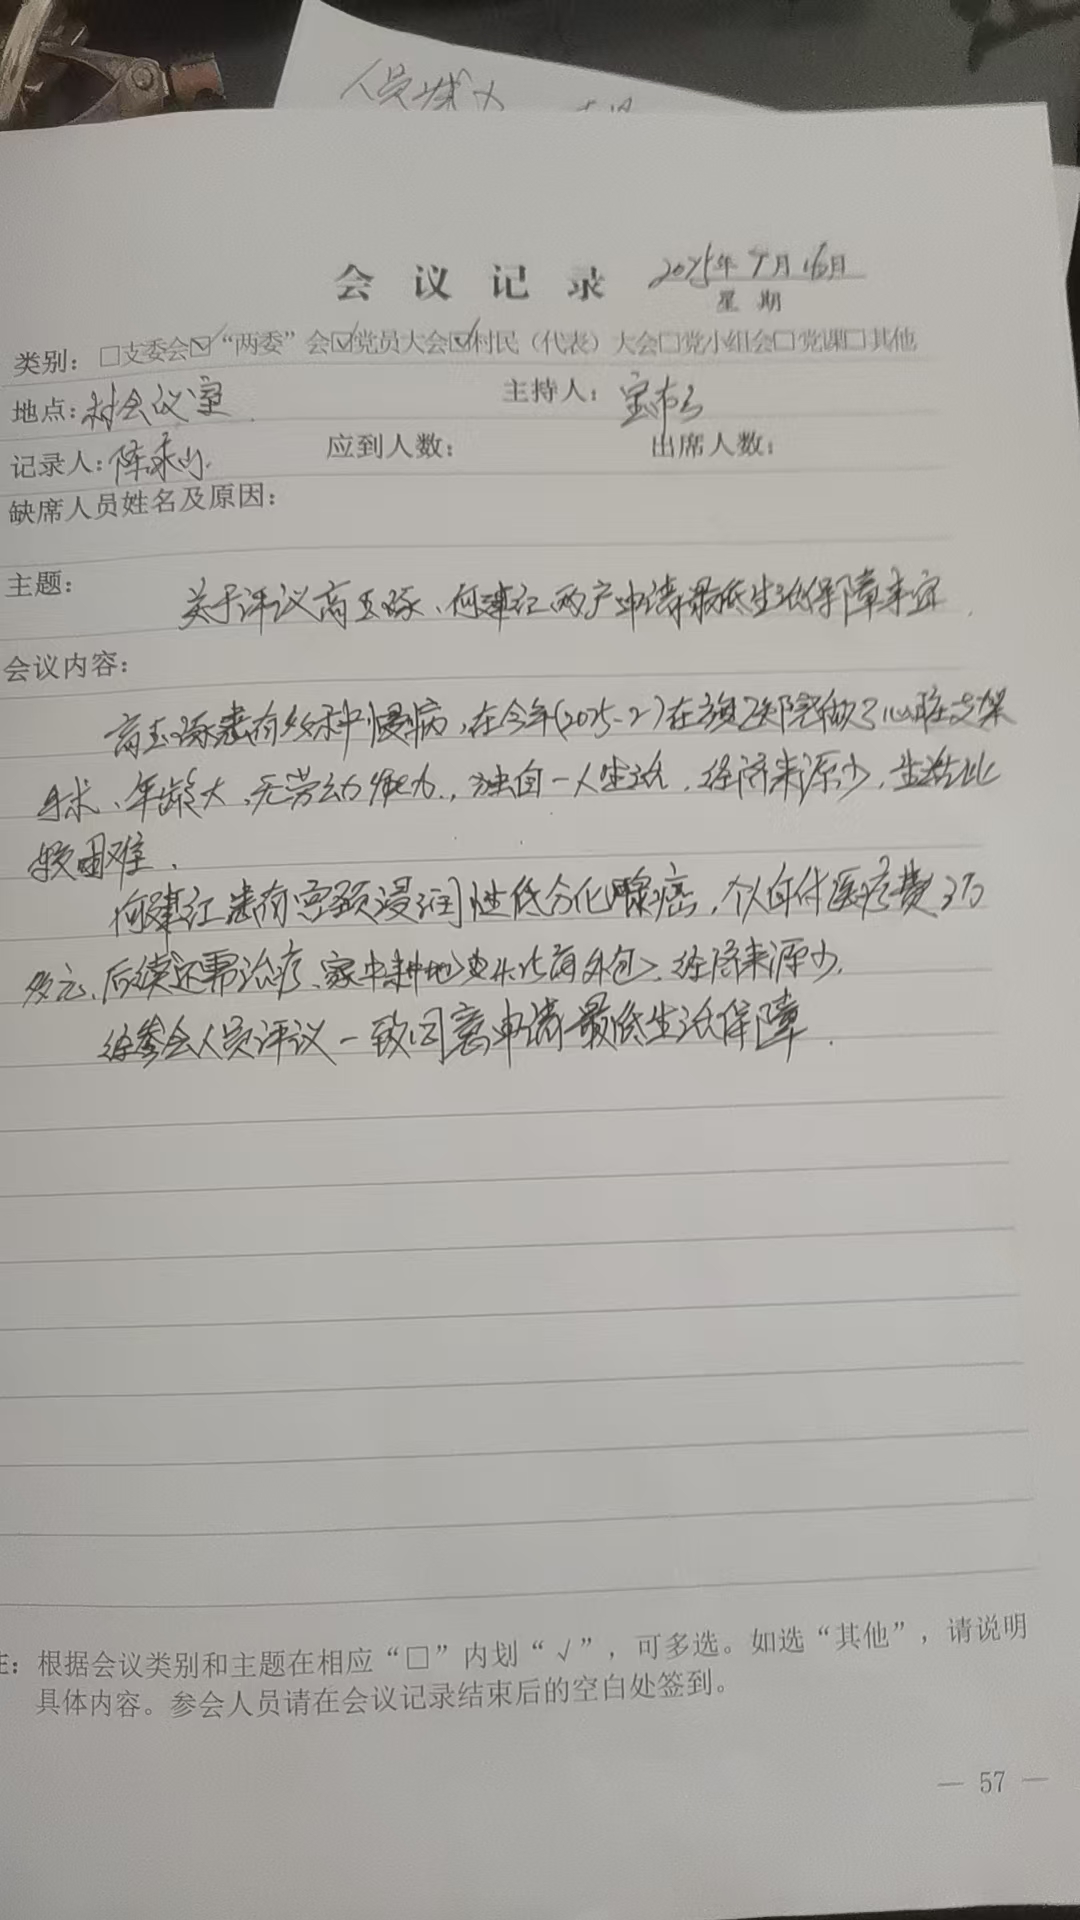 人员
会议记录 2025年 月16日
星期
类别：□支委会☑“两委”会☑党员大会☑村民（代表）大会□党小组会□党课□其他
地点：村会议室 主持人：宝
记录人：陈 应到人数： 出席人数：
缺席人员姓名及原因：
主题： 关于评议高玉琢、何建红两户申请最低生活保障事宜.
会议内容：
高玉琢患有多种慢病,在今年(2025-2)在旗医院做了心脏支架
手术、年龄大、无劳动能力.,独自一人生活,经济来源少,生活比
较困难.
何建红患有宫颈浸润性低分化腺癌,个人自付医疗费3万
多元、后续还需治疗、家中耕地 外包 、经济来源少.
经参会人员评议一致同意申请最低生活保障.
注：根据会议类别和主题在相应“□”内划“√”，可多选。如选“其他”，请说明
具体内容。参会人员请在会议记录结束后的空白处签到。
— 57 —